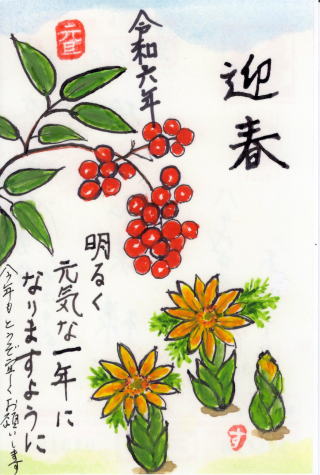 迎春
令和六年
元旦
明るく
元気な一年に
なりますように
今年もどうぞ宜しくお願いします
す